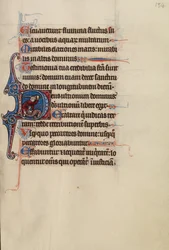 leuauerunt flumina fluctus su
os a uocibus aquarum multarum
Mirabiles elationes maris: mirabi
lis in altis dominus
Testimonia tua credibilia facta sunt
nimis: domum tuam decet sanctitu
do domine in longitudinem dierum
eus ultionum dominus:
ultionum libere egit
Exaltare qui iudicas ter
ram: redde retributionem superbis
Usquequo peccatores domine: usquequo
peccatores gloriabuntur
Effabuntur et loquentur iniquitatem: lo
quentur omnes qui operantur iniusticiam